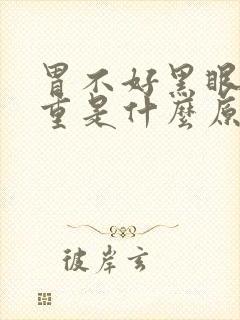 胃不好黑眼
重是什麼原
彼岸玄